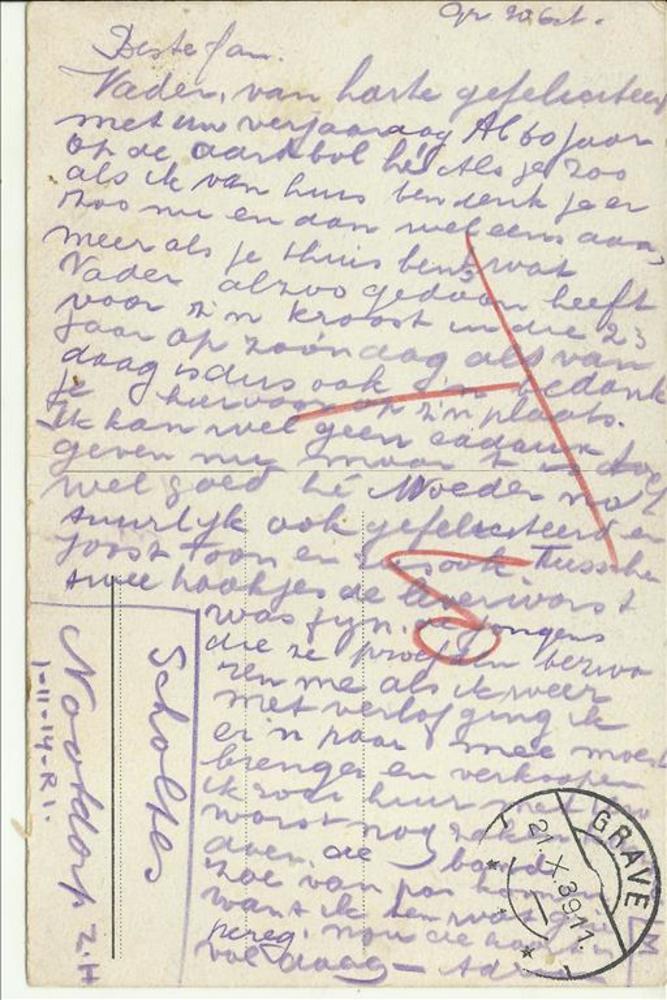 Gr 20 Oct.
Beste Jan.
Vader, van harte gefeliciteerd
met uw verjaardag Al 60 jaar
op de aardbol hè Als je zoo
als ik van huis ben denk je er
zoo nu en dan wel eens aan,
meer als je thuis bent, wat
Vader alzoo gedaan heeft
voor z'n kroost in die 23
jaar op zoo'n dag als van
daag is dus ook 'n bedank
je hiervoor op z'n plaats.
Ik kan wel geen cadeautje
geven nu maar t is
wel goed hé Moeder na
tuurlyk ook gefeliciteerd en
Joost Toon en ook. Tusschen
twee haakjes de leverworst
was fyn. de jongens
die ze proefden bezwo
ren me als ik weer
met verlof ging ik
er 'n paar mee moest
brengen en verkoopen
ik zou hier met
worst nog zaken
doen. de band
zoe van pas komen
want ik ben
pereg. nou de kaart is
vol daag — Adri
Scholtes
Nootdorp Z.H
1-11-14-R.I.
GRAVE
21.X.39.11.